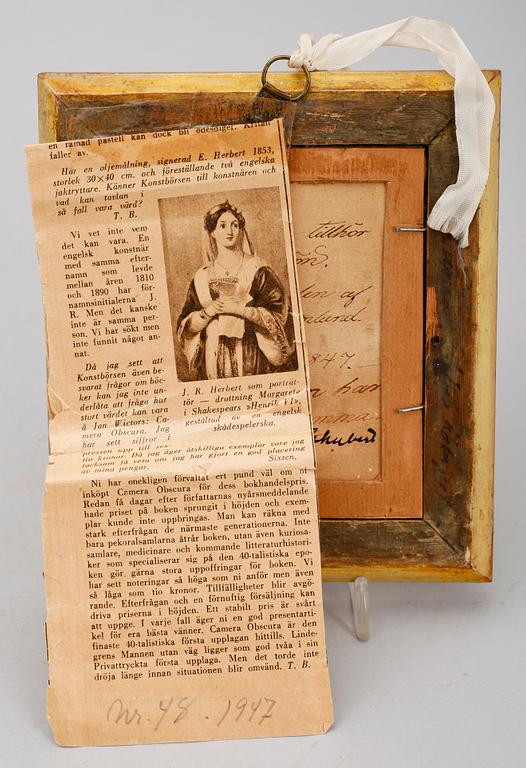 en ramad pastell kan dock bli ödesdiger. Kritan
faller av.
Har en oljemålning, signerad E. Herbert 1853,
storlek 30×40 cm. och föreställande två engelska
jaktryttare. Känner Konstbörsen till konstnären och
vad kan tavlan i
så fall vara värd?
T. B.
Vi vet inte vem
det kan vara. En
engelsk konstnär
med samma efter-
namn som levde
mellan åren 1810
och 1890 har för-
namnsinitialerna J.
R. Men det kanske
inte är samma per-
son. Vi har sökt men
inte funnit något an-
nat.
J. R. Herbert som porträt-
tör — drottning Margareta
i Shakespears »Henrik VI»,
gestaltad av en engelsk
skådespelerska.
Då jag sett att
Konstbörsen även be-
svarat frågor om böc-
ker kan jag inte un-
derlåta att fråga hur
stort värdet kan vara
å Jan Wictors: Ca-
mera Obscura. Jag
har sett siffror i
pressen upp till sex-
tio kronor. Då jag äger åtskilliga exemplar vore jag
tacksam få veta om jag har gjort en god placering
av mina pengar.
Sixten.
Ni har onekligen förvaltat ert pund väl om ni
inköpt Camera Obscura för dess bokhandelspris.
Redan få dagar efter författarnas nyårsmeddelande
hade priset på boken sprungit i höjden och exem-
plar kunde inte uppbringas. Man kan räkna med
stark efterfrågan de närmaste generationerna. Inte
bara pekoralsamlarna åtrår boken, utan även kuriosa-
samlare, medicinare och kommande litteraturhistori-
ker som specialiserar sig på den 40-talistiska epo-
ken gör gärna stora uppoffringar för boken. Vi
har sett noteringar så höga som ni anför men även
så låga som tio kronor. Tillfälligheter blir avgö-
rande. Efterfrågan och en förnuftig försäljning kan
driva priserna i höjden. Ett stabilt pris är svårt
att uppge. I varje fall äger ni en god presentarti-
kel för era bästa vänner. Camera Obscura är den
finaste 40-talistiska första upplagan hittills. Linde-
grens Mannen utan väg ligger som god tvåa i sin
Privattryckta första upplaga. Men det torde inte
dröja länge innan situationen blir omvänd. T. B.
Nr. 48. 1947
tillhör
af
847.
han
Schubert